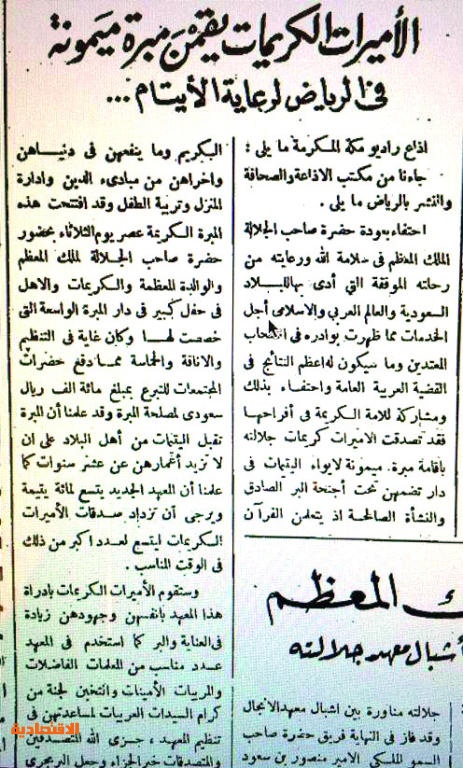 الأميرات الكريمات يقمن مبرة ميمونة
في الرياض لرعاية الأيتام ...
اذاع راديو مكة المكرمة ما يلي :
جاءنا من مكتب الاذاعة والصحافة
والنشر بالرياض ما يلي .
احتفاء بعودة حضرة صاحب الجلالة
الملك المعظم في سلامة الله ورعايته من
رحلته الموفقة التي أدى بها للبلاد
السعودية والعالم العربي والاسلامي أجل
الخدمات مما ظهرت بوادره في انسحاب
المعتدين وما سيكون له اعظم النتائج في
القضية العربية العامة واحتفاء بذلك
ومشاركة للامة الكريمة في أفراحها
فقد تصدقت الاميرات كريمات جلالته
باقامة مبرة ميمونة لايواء اليتيمات في
دار تضمهن تحت أجنحة البر الصادق
والنشأة الصالحة اذ يتعلمن القرآن
الكريم وما ينفعهن في دنياهن
واخراهن من مبادىء الدين وادارة
المنزل وتربية الطفل وقد افتتحت هذه
المبرة الكريمة عصر يوم الثلاثاء بحضور
حضرة صاحب الجلالة الملك المعظم
والوالدة المعظمة والكريمات والاهل
في حفل كبير في دار المبرة الواسعة التي
خصصت لها وكان غاية في التنظيم
والاناقة والحماسة مما دفع حضرات
المجتمعات للتبرع بمبلغ مائة الف ريال
سعودي لمصلحة المبرة وقد علمنا أن المبرة
تقبل اليتيمات من أهل البلاد على ان
لا تزيد أعمارهن عن عشر سنوات كما
علمنا أن المعهد الجديد يتسع لمائة يتيمة
ويرجى أن تزداد صدقات الأميرات
الكريمات ليتسع لعدد اكبر من ذلك
في الوقت المناسب .
وستقوم الأميرات الكريمات بادراة
هذا المعهد بانفسهن وجهودهن زيادة
في العناية والبر كما استخدم في المعهد
عدد مناسب من المعلمات الفاضلات
والمربيات الأمينات وانتخبن لجنة من
كرام السيدات العربيات لمساعدتهن في
تنظيم المعهد ، جزى الله المتصدقين
والمتصدقات خير الجزاء وجعل
ك المعظم
أشبال معهد جلالته
جلالته مناورة بين اشبال معهد الانجال
وقد فاز في النهاية فريق حضرة صاحب
السمو الملكي الامير منصور بن سعود
الاقتصادية